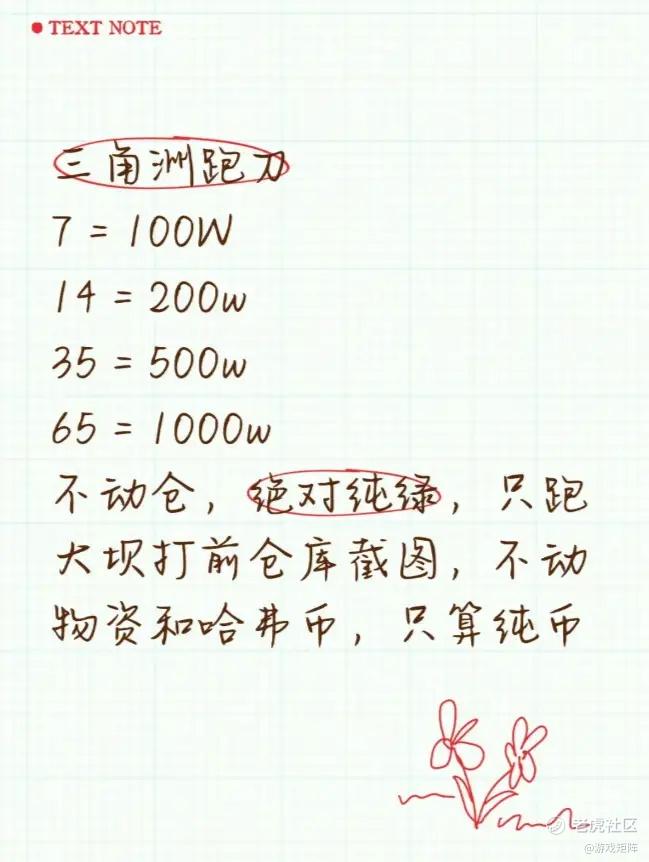 TEXT NOTE
三角洲跑刀
7 = 100W
14 = 200w
35 = 500w
65 = 1000w
不动仓，绝对纯绿，只跑
大坝打前仓库截图，不动
物资和哈弗币，只算纯币
老虎社区
@游戏矩阵